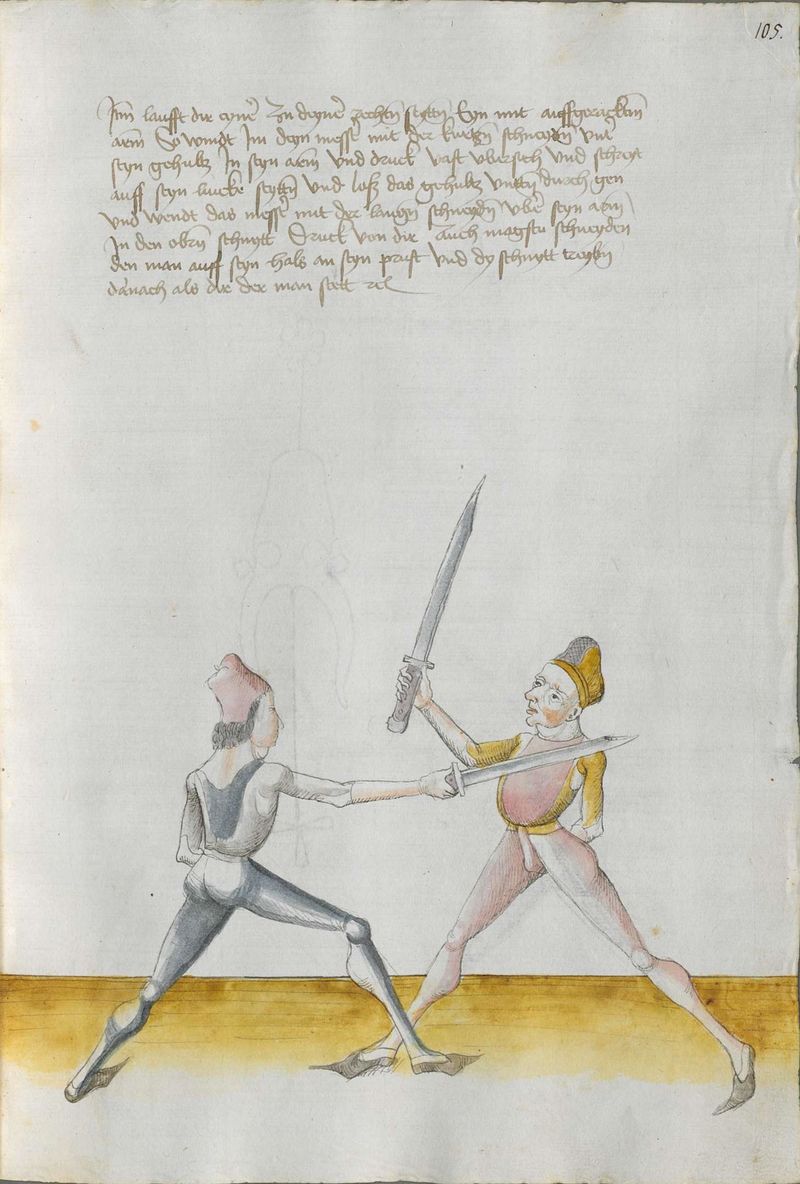 105.
Itm̄ laufft dir eyner Zu deyner rechtn̄ seyttn̄ Eyn mit auffgeragktem
arm So windt Im deyn messr̄ mit der kurtzn̄ schneydn̄ vnt
seyn gehultz In seyn arm Vnd druck vast vbersich Vnd schreyt
auff seyn lincke seytn̄ Vnd losz das gehultz vnttn̄ durch gen
Vnd wendt das messr̄ mit der langn̄ schneydn̄ vbr̄ seyn arm
In den obrn̄ schnytt Druck von dir Auch magstu schneyden
den man auff seyn hals an seyn prust Vnd dy schnytt treybn̄
darnach als dir der man stett